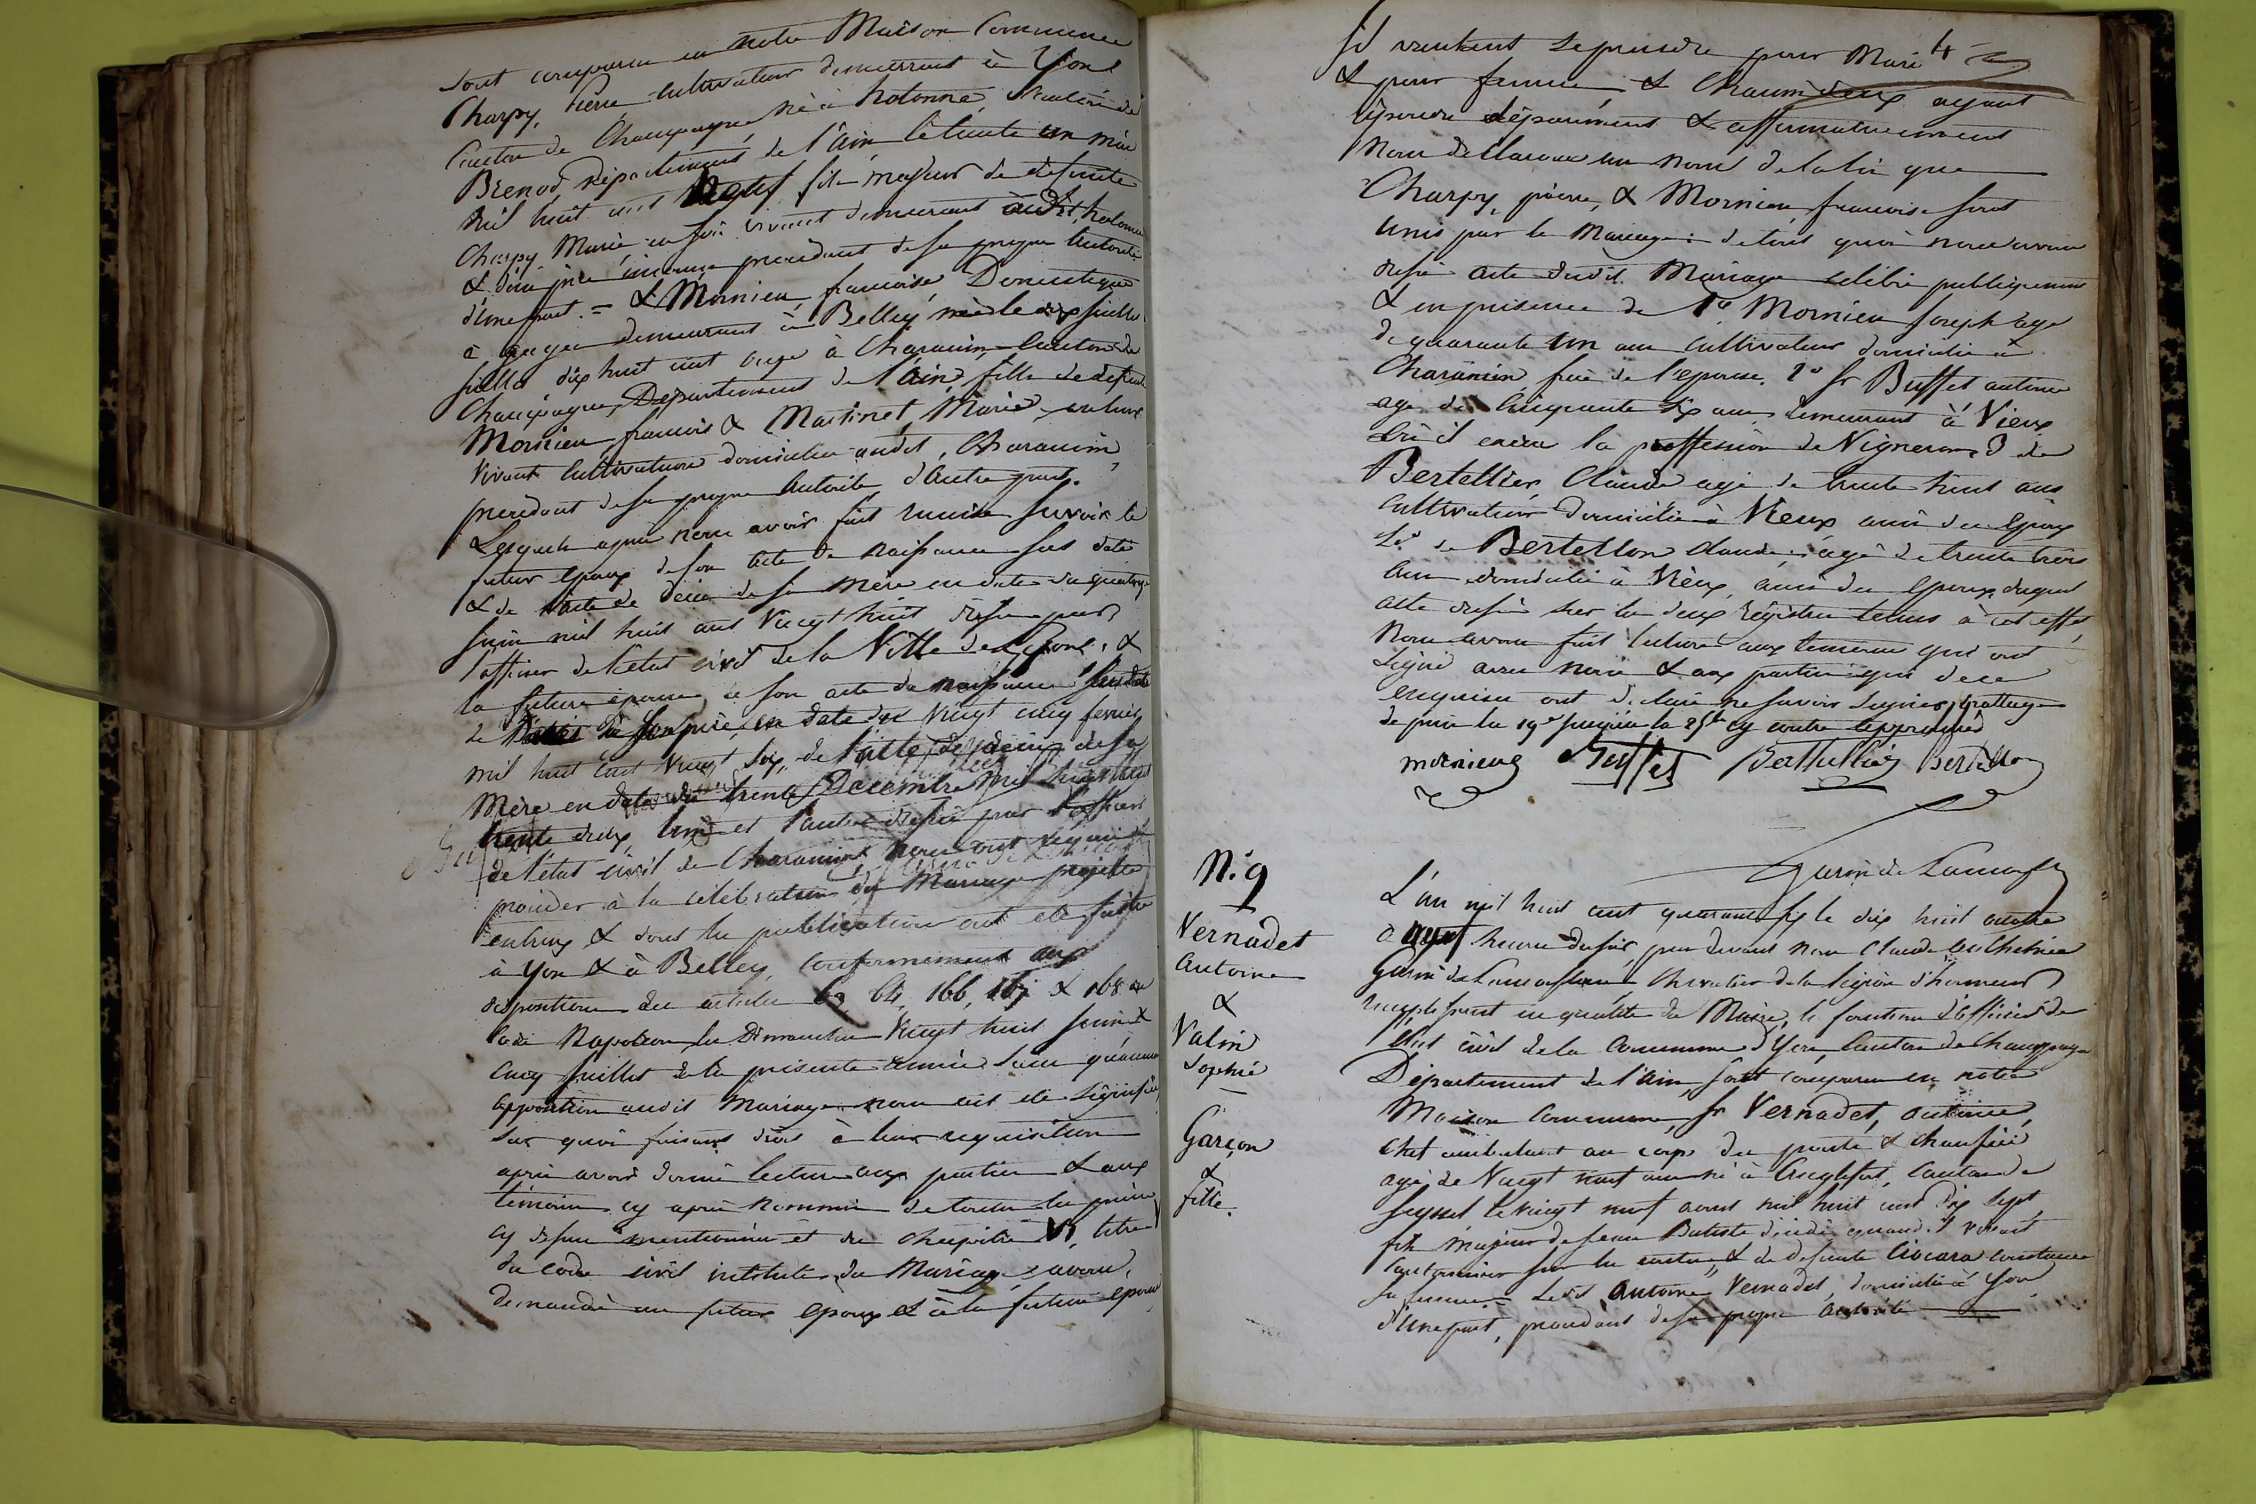 sont comparu en notre Maison Commune
Charpy, Pierre cultivateur demeurant à Yon
Canton de Champagne né à hotonne, Canton de
Brenod, Département de l'ain le trente un mai
mil huit cent neuf fils majeur de defunte
Charpy Marie en son vivant demeurant audit, hotonne
& d'un père inconnu procedant de sa propre autorité
d'une part. = & Mornieu francoise Domestique
à gages demeurant à Belley, née le dix juillet
mil dix huit cent onze à Charancin, Canton de
Champagne, Département de l'ain, fille de defunt
Mornieu, francois & Martinet, Marie,
vivant cultivateurs domiciliés audit, Charancin,
procedant de sa propre autorité d'autre part.
Lesquels après nous avoir fait remise savoir le
futur époux de son acte de naissance sus daté
& de l'acte de décès de sa mère en date du quatorze
juin mil huit cent vingt huit dressé par
l'officier de l'état civil de la Ville de Lyon, &
la future épouse de son acte de naissance sus daté
de de son père, en date du vingt cinq fevrier
mil huit cent vingt six, de l'acte de décès de sa
Mère en date du trente Decembre mil huit cent
trente deux l'un et l'autre dressé par l'officier
de l'état civil de Charancin nous ont requis de
proceder à la célébration du Mariage projetté
entreux & dont les publications ont été faites
à Yon & à Belley, conformement aux
dispositions des articles 63, 64, 166, 167 & 168 du
code Napoléon les Dimanches Vingt huit Juin &
cinq Juillet de la présente année sans qu'aucune
opposition audit Mariage nous ait été signifiée,
sur quoi faisant droit à leur requisition
après avoir donné lecture aux parties & aux
témoins cy après nommés de toutes les pièces
cy dessus mentionnées et du chapitre VI, titre V
du code civil intitulé du Mariage avons,
demandé au futur epoux & à la future epouse
s'il veulent se prendre pour Mari
& pour femme, & Chacun deux ayant
répondu séparément & affirmativement
nous déclarons au nom de la loi que
Charpy, pierre, & Mornieu, francoise sont
unis par le Mariage: de tout quoi nous avons
dressé acte dudit Mariage célébré publiquement
& en présence de 1° Mornieu Joseph agé
de quarante un ans cultivateur domicilié à
Charancin, frère de l'epouse, 2° Sr Buffet antoine
agé de Cinquante six ans demeurant à Vieux
où il exerce la proffession de Vigneron, 3 de
Bertellier Claude agé de trente huit ans
Cultivateur Domicilié à Vieux ami des Epoux
4° de Bertellon Claude, agé de trente trois
ans domicilié à Vieux, ami des epoux duquel
acte dressé sur les deux régistres tenus à cet effet,
Nous avons fait lecture aux témoins qui ont
signé avec nous & aux parties qui de ce
enquises ont déclaré ne savoir signer, grattage
depuis la 19e jusqu'à la 25e cy contre approuvé
mornieux Buffet Berthellier Bertellon
Garin de Lamorflan
N.° 9
Vernadet
Antoine
&
Valin
Sophie
Garçon
&
fille.
L'an mil huit cent quarante six le dix huit
a heures du soir, par devant nous Claude
Garin de Lamorflan Chevalier de la légion d'honneur
remplissant en qualité de Maire, les fonctions d'officier de
l'état civil de la Commune d'Yon, Canton de Champagne
Département de l'ain, sont comparu en notre
Maison Commune, Sr Vernadet, antoine,
Chef ambulant au corps des ponts & chaussées
agé de Vingt neuf ans né à Anglefort, Canton de
Seyssel le vingt neuf avril mil huit cent dix sept
fils majeur de Jean Batiste décédé quand il vivait
Cantonnier sur les routes, & de defunte
sa femme. Ledit Antoine Vernadet, domicilié à Yon
d'une part, procédant de sa propre autorité